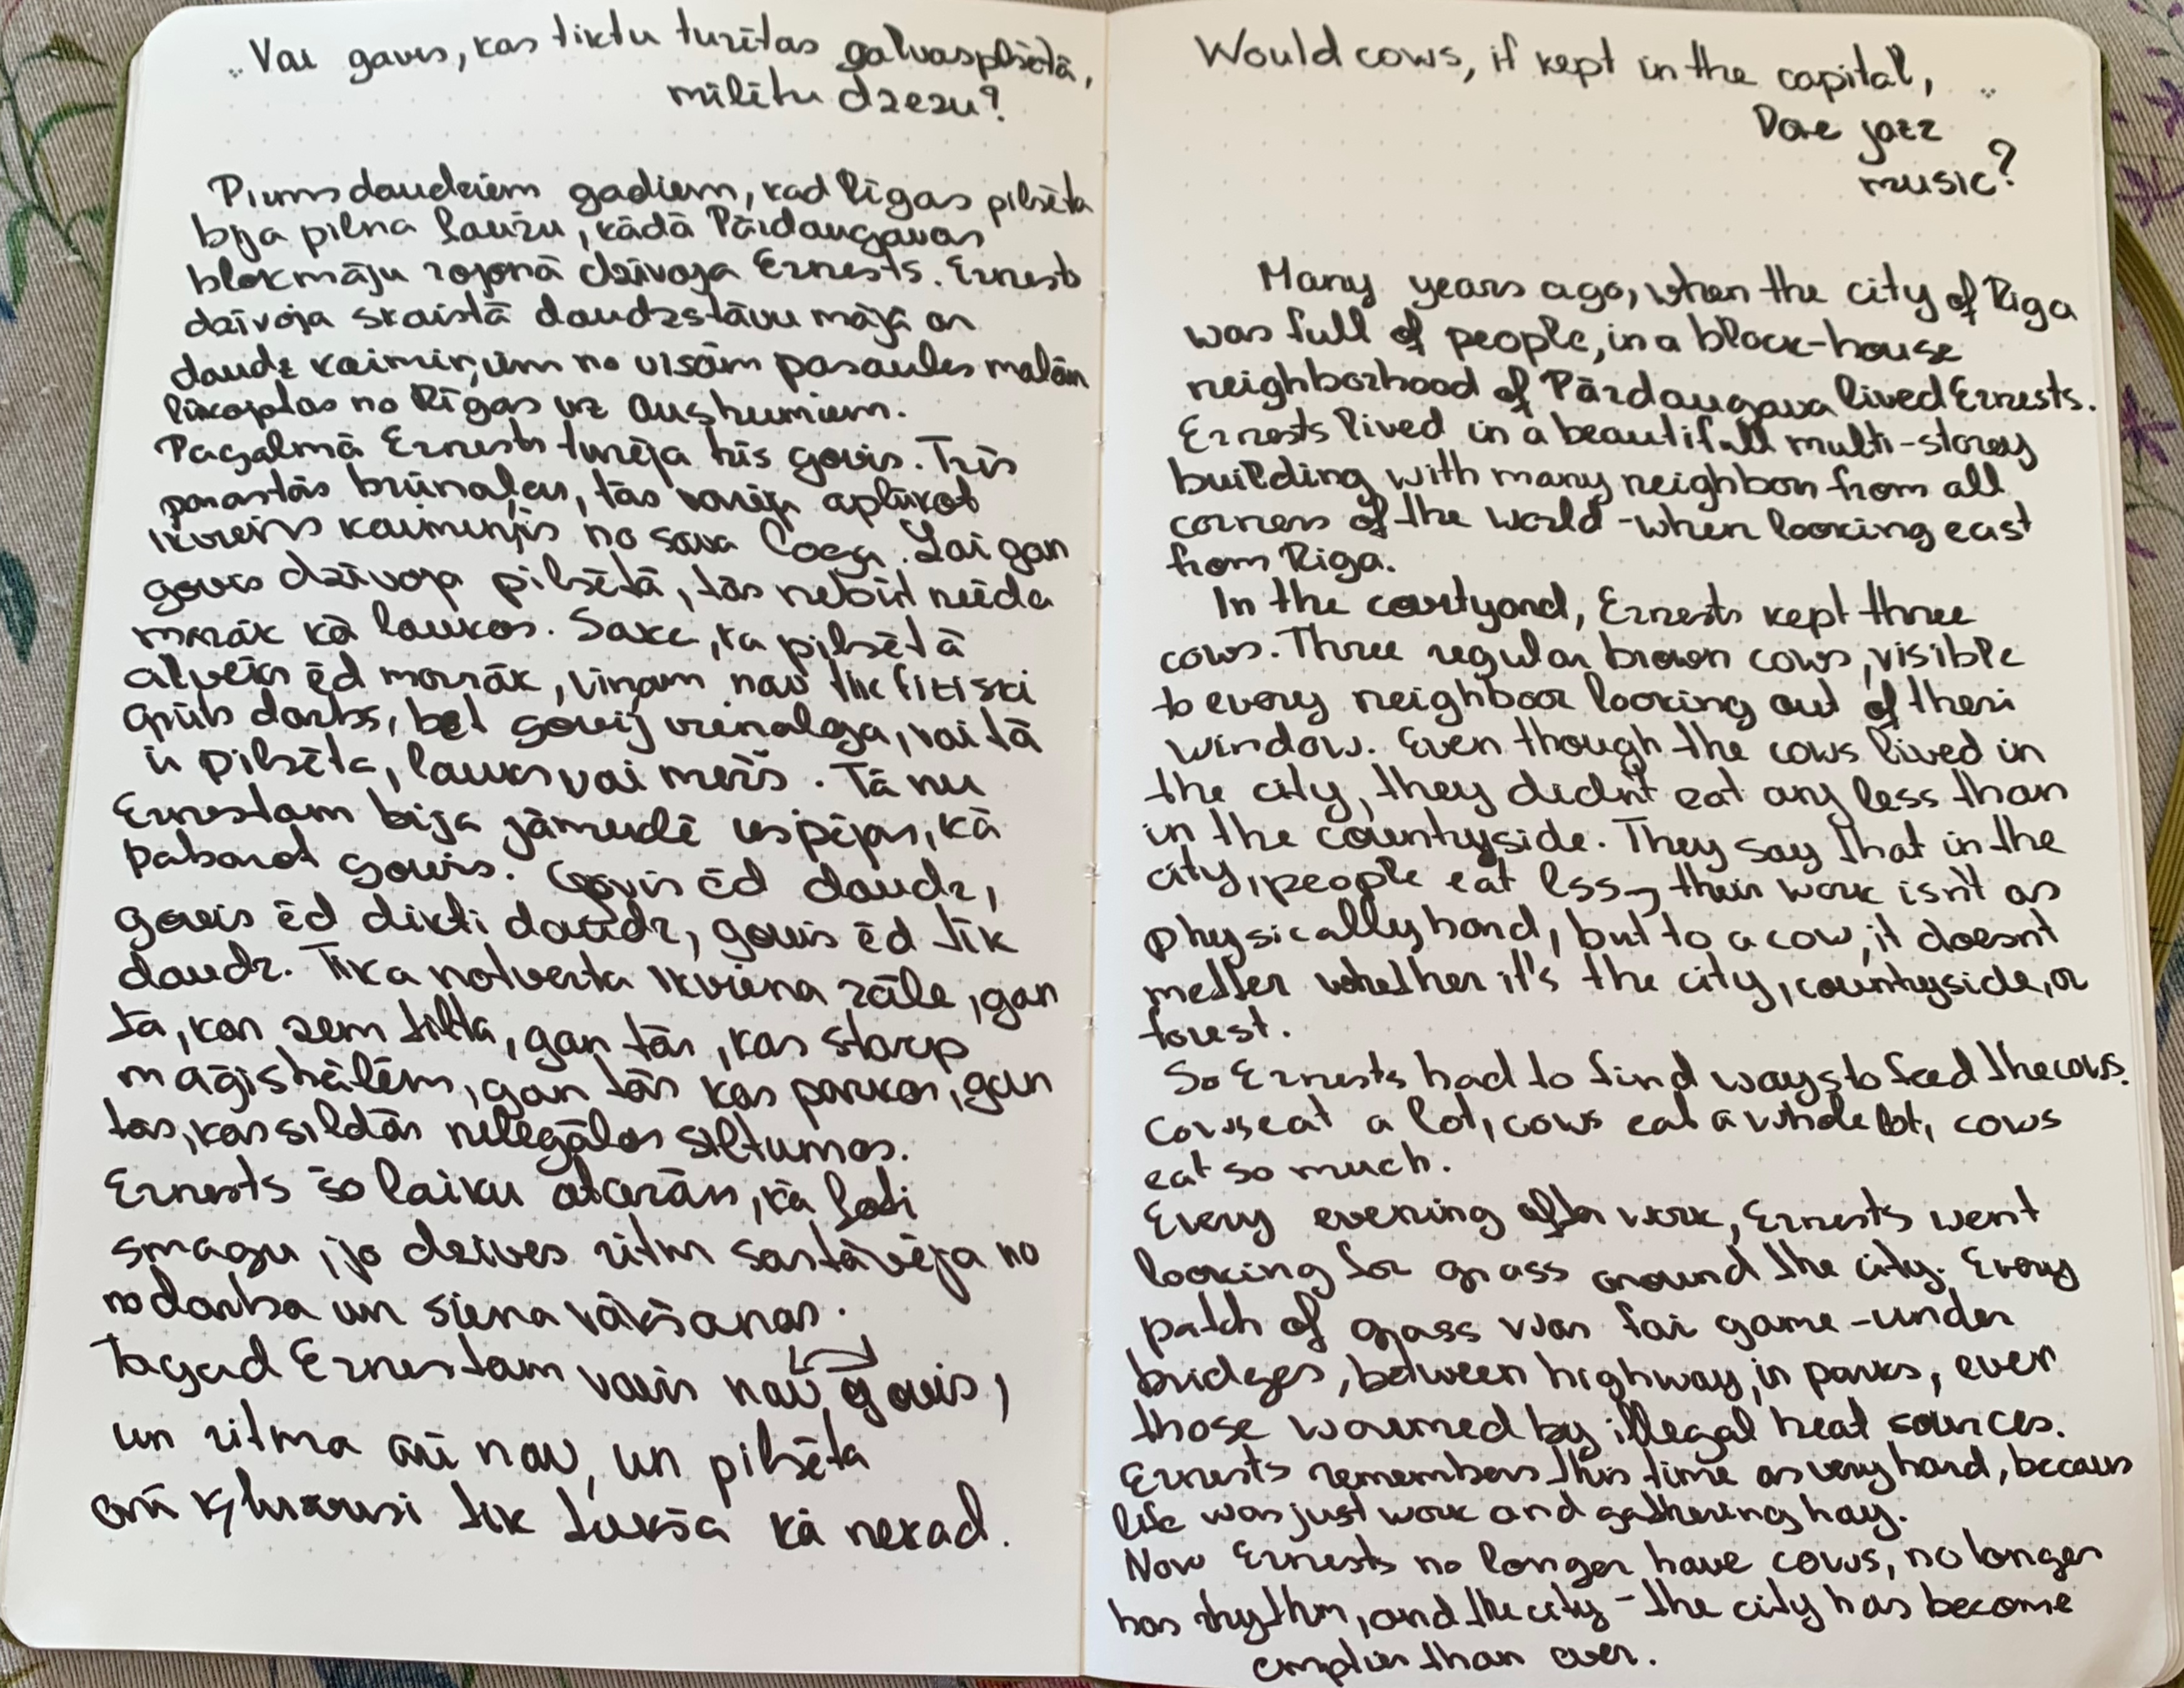 Vai govis, kas tiktu turētas galvaspilsētā,
mīlētu džezu?
Pirms daudziem gadiem, kad Rīgas pilsēta
bija pilna ļaužu, kādā Pārdaugavas
blokmāju rajonā dzīvoja Ernests. Ernests
dzīvoja skaistā daudzstāvu mājā ar
daudz kaimiņiem no visām pasaules malām
lūkojoties no Rīgas uz Austrumiem.
Pagalmā Ernests turēja trīs govis. Trīs
parastās brūnaļas, tās varēja aplūkot
ikviens kaimiņš no sava loga. Lai gan
govis dzīvoja pilsētā, tās nebūt neēda
mazāk kā laukos. Saka, ka pilsētā
cilvēks ēd mazāk, viņam nav tik fiziski
grūts darbs, bet govij vienalga, vai tā
ir pilsēta, lauks vai mežs. Tā nu
Ernestam bija jāmeklē iespējas, kā
pabarot govis. Govis ēd daudz,
govis ēd dikti daudz, govis ēd tik
daudz. Tika notverta ikviena zāle, gan
tā, kas zem tilta, gan tās, kas starp
maģistrālēm, gan tās kas parkos, gan
tās, kas sildās nelegālos siltumos.
Ernests šo laiku atcerās, kā ļoti
smagu, jo dzīves ritms sastāvēja no
no darba un siena vākšanas.
Tagad Ernestam vairs nav govis,
un ritma arī nav, un pilsēta
arī kļuvusi tik tukša kā nekad.
Would cows, if kept in the capital,
Dove jazz
music?
Many years ago, when the city of Riga
was full of people, in a block-house
neighborhood of Pārdaugava lived Ernests.
Ernests lived in a beautifull multi-storey
building with many neighbors from all
corners of the world - when looking east
from Riga.
In the courtyard, Ernests kept three
cows. Three regular brown cows, visible
to every neighboor looking out of theri
window. Even though the cows lived in
the city, they didn't eat any less than
in the countryside. They say that in the
city, people eat lss - their work isn't as
physically hard, but to a cow, it doesn't
metter whether it's the city, countryside, or
forest.
So Ernests had to find ways to feed the cows.
Cows eat a lot, cows eat a whole lot, cows
eat so much.
Every evening after work, Ernests went
looking for grass around the city. Every
patch of grass was fair game - under
bridges, between highway, in parks, even
those warmed by illegal heat sources.
Ernests remembers this time as very hard, becaus
life was just work and gathering hay.
Now Ernests no longer have cows, no longer
has rhythm, and the city - the city has become
emptier than ever.